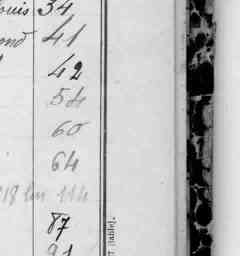 ouis 34
41
42
54
60
64
118 bis 114
87
91
T [table].